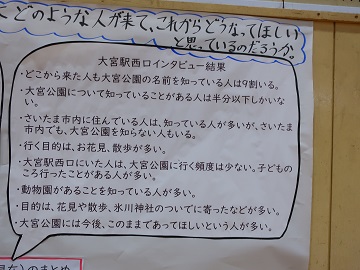 どのような人が来て、これからどうなってほしい
と思っているのだろうか。
大宮駅西口インタビュー結果
・どこから来た人も大宮公園の名前を知っている人は9割いる。
・大宮公園について知っていることがある人は半分以下しかいな
い。
・さいたま市内に住んでいる人は、知っている人が多いが、さいたま
市内でも、大宮公園を知らない人もいる。
・行く目的は、お花見、散歩が多い。
・大宮駅西口にいた人は、大宮公園に行く頻度は少ない。子どもの
ころ行ったことがある人が多い。
・動物園があることを知っている人が多い。
・目的は、花見や散歩、氷川神社のついでに寄ったなどが多い。
・大宮公園には今後、このままであってほしいという人が多い。
のまとめ